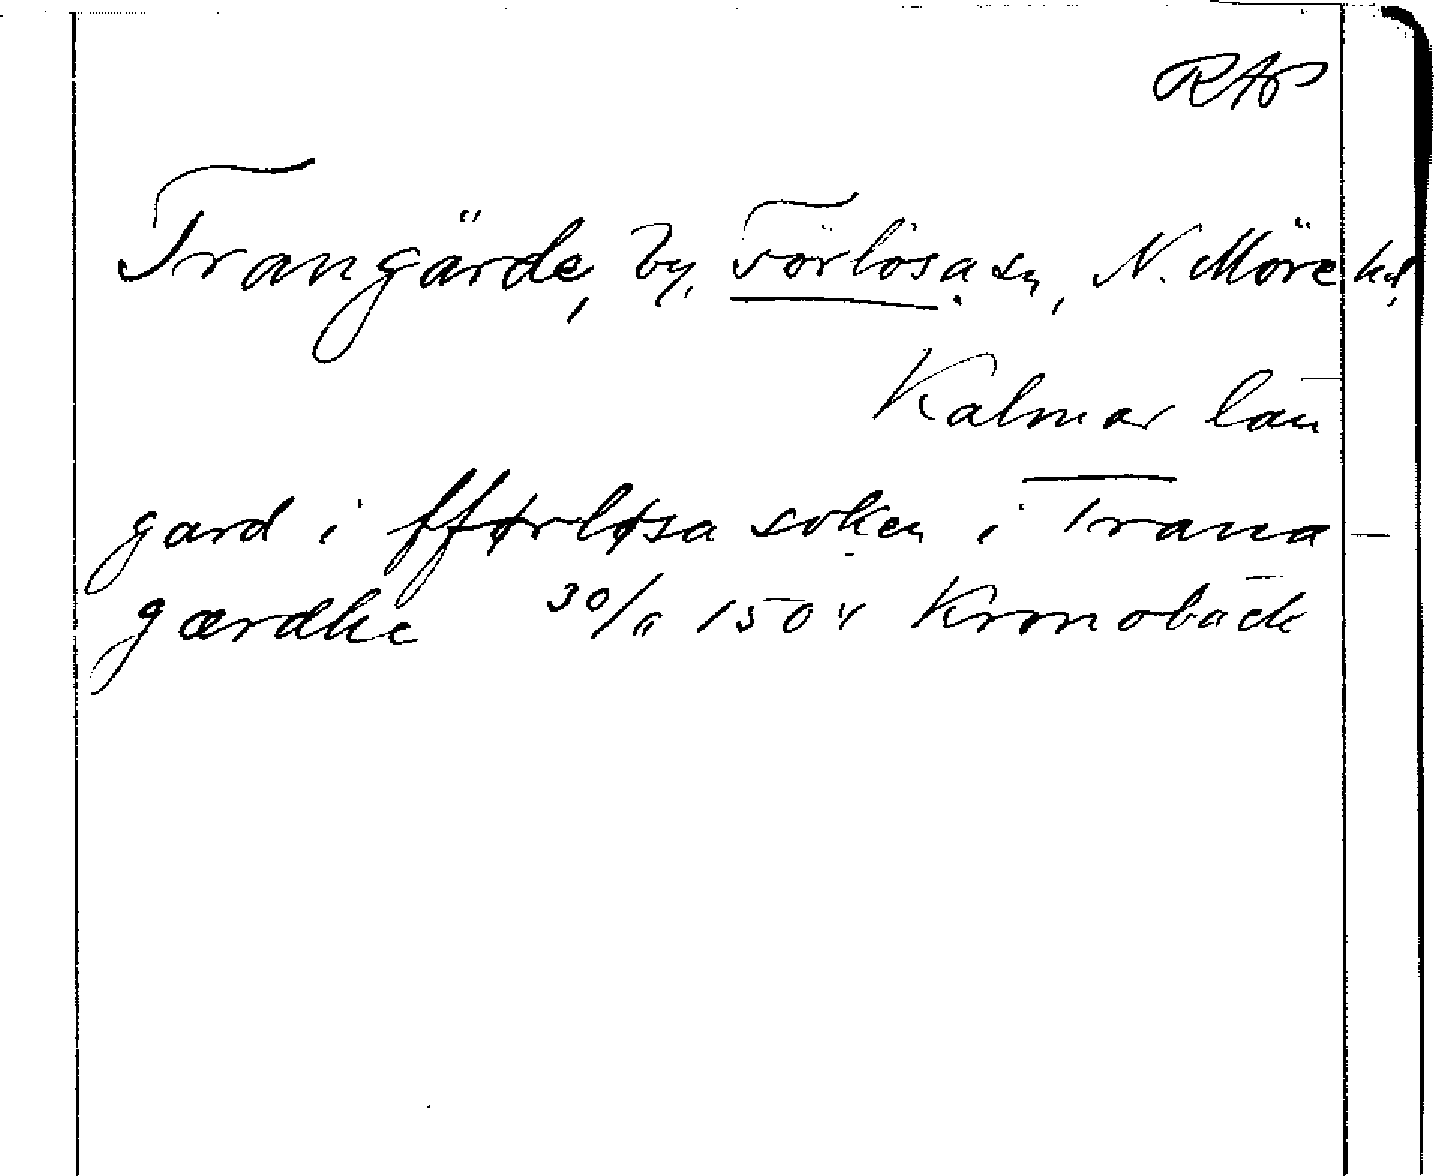 RAP
Trangärde, by, Förlösa sn, N. Möre hd,
Kalmar län
gard i fførløsa soken i Trana-
gærdhe 30/11 1504 Kronobäck